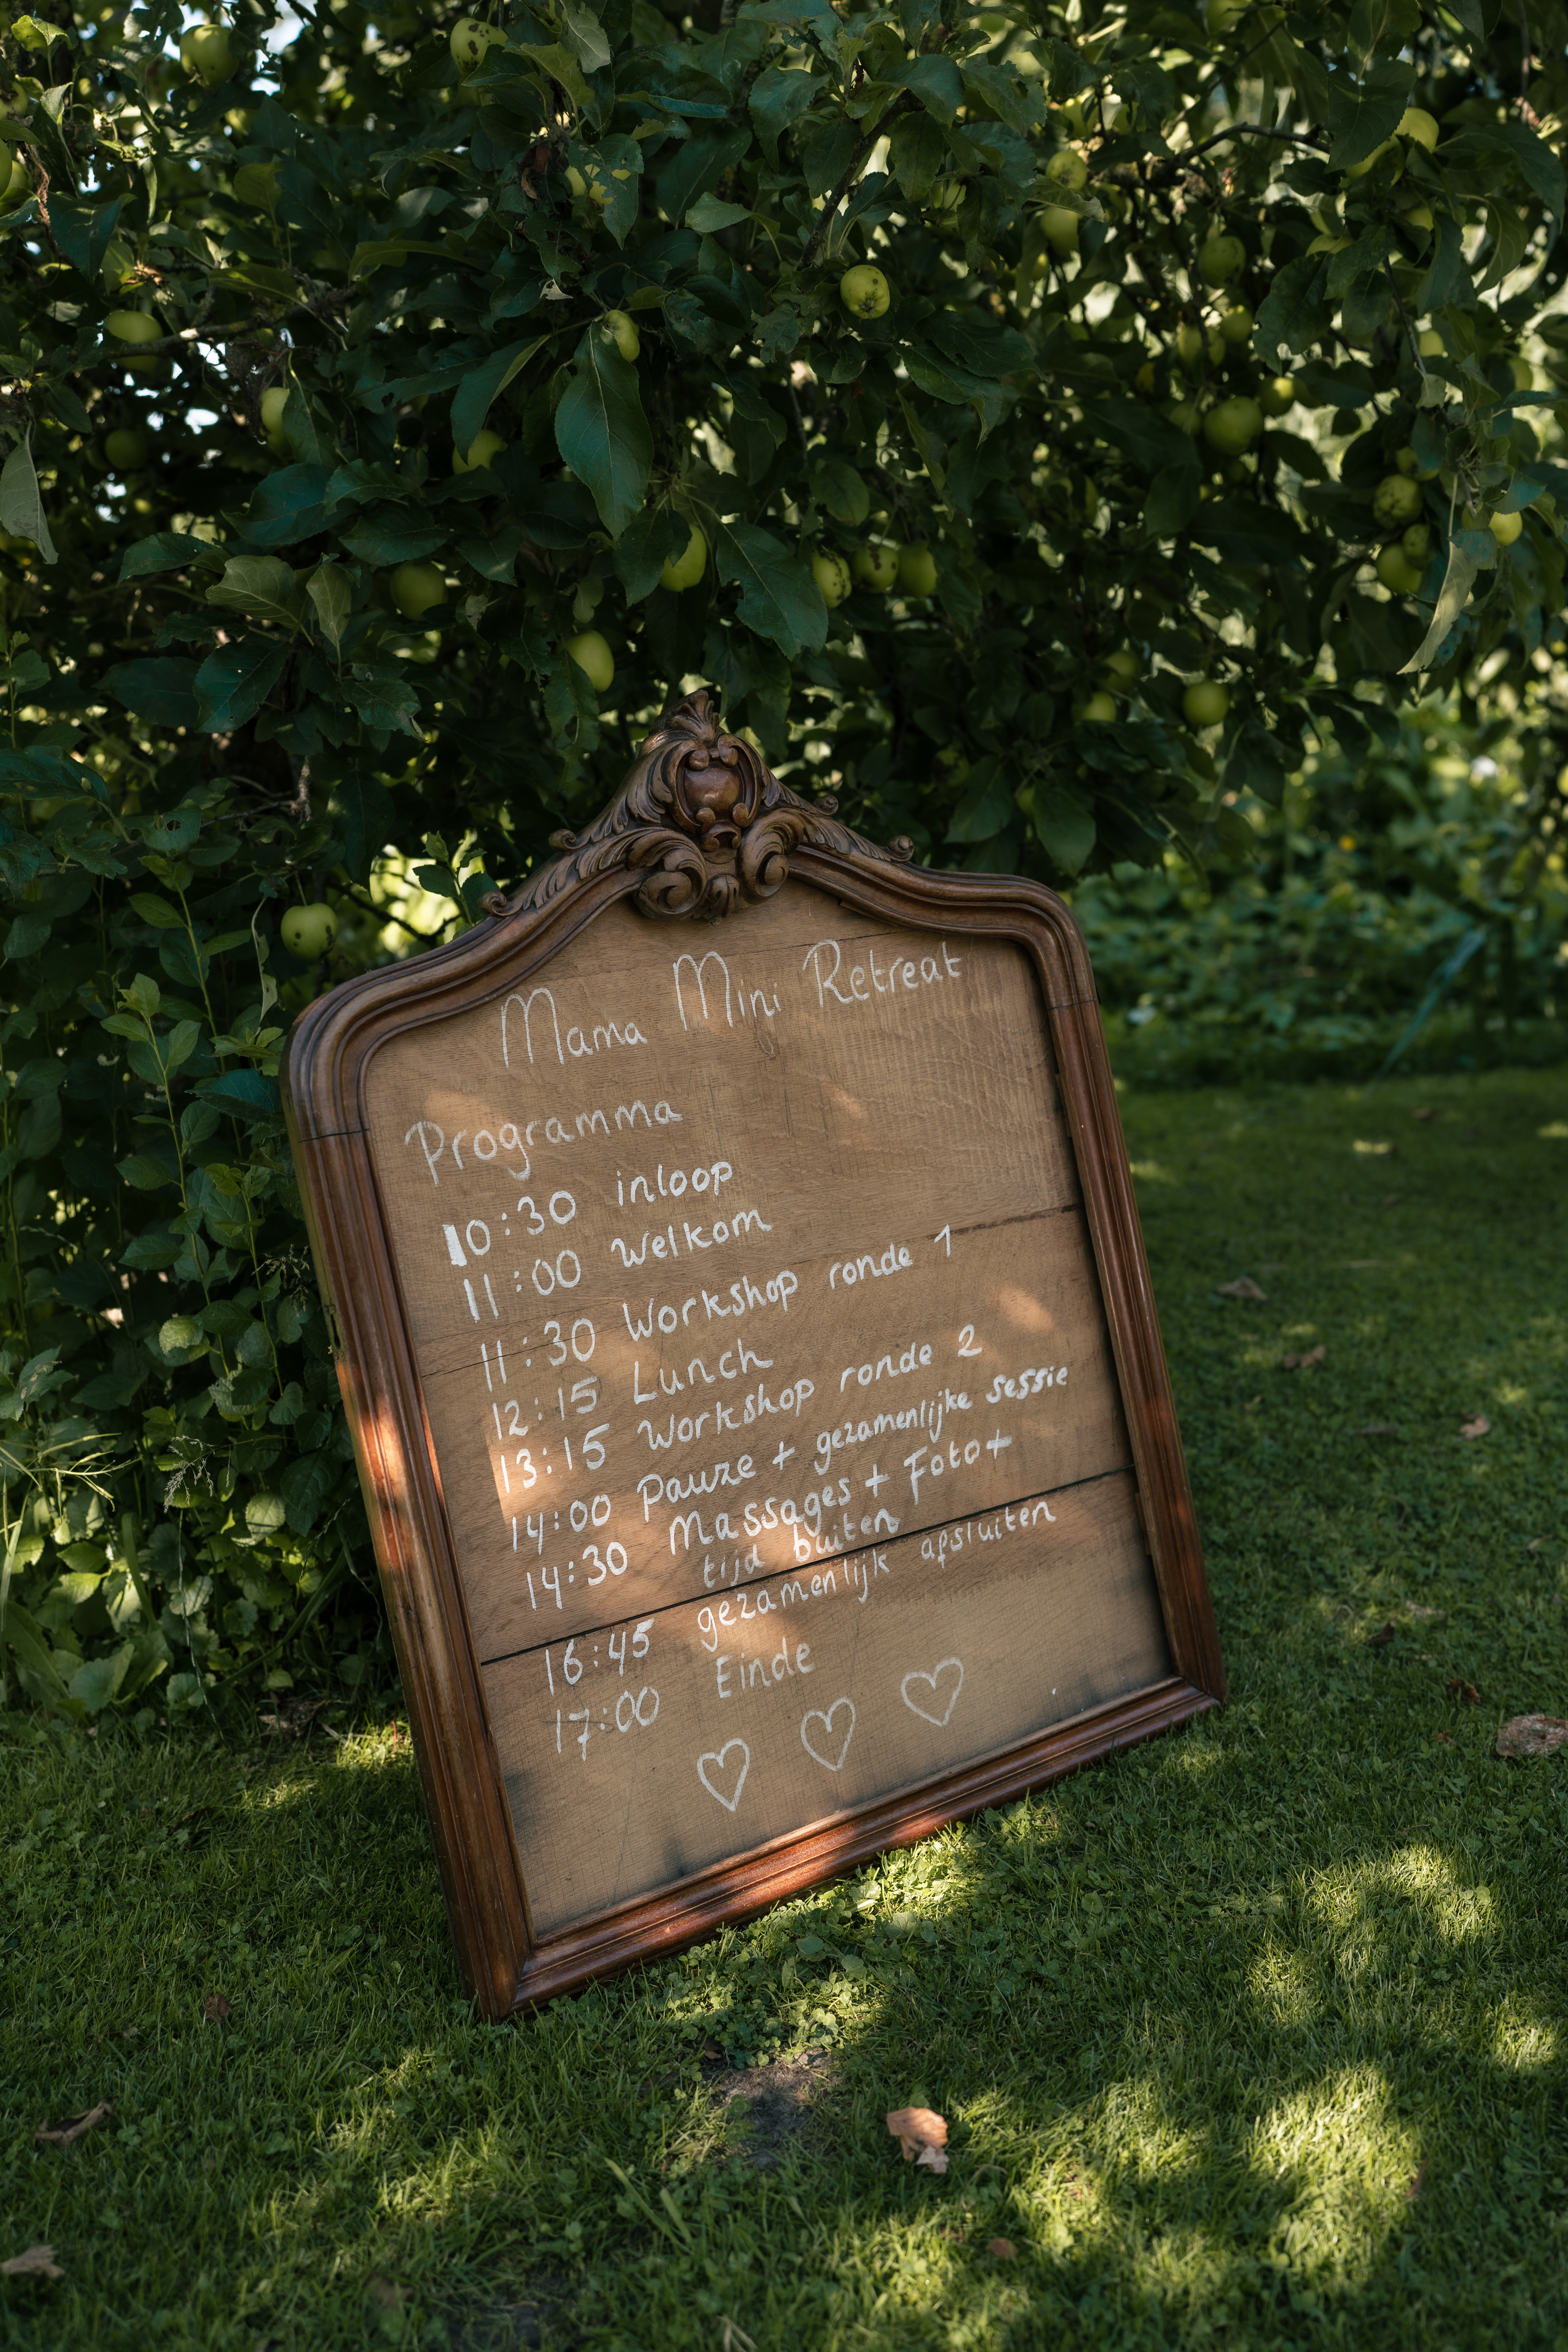 Mama Mini Retreat
Programma
10:30 inloop
11:00 Welkom
11:30 Workshop ronde 1
12:15 Lunch
13:15 Workshop ronde 2
14:00 Pauze + gezamenlijke sessie
14:30 Massages + Foto +
tijd buiten
16:45 gezamenlijk afsluiten
17:00 Einde